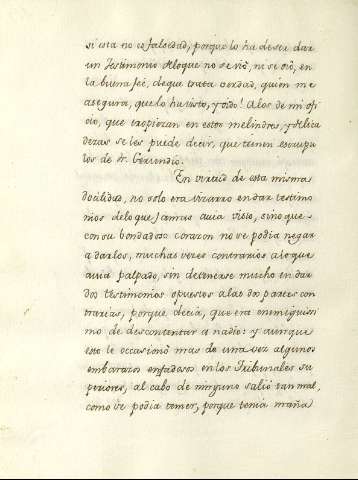 si esta no es falsedad, porque lo ha de ser dar
un Testimonio de loque no se vió, ni se oió, en
la buena feé, de que trata verdad, quien me
asegura, que lo ha visto, y oido! Alos de mi ofi
cio, que tropiezan en estos melindres, y delica
dezas se les puede decir, que tienen escrupu
los de Fr. Gerundio.
En virtud de esta misma
docilidad, no solo era vizarro en dar testimo
nios delo que jamas avia visto, sino que
con su bondadoso corazon no se podia negar
a darlos, muchas veces contrarios alo que
avia palpado, sin detenerse mucho en dar
dos testimonios opuestos alas dos partes con
trarias, porque decia, que era enemiguissi
mo de descontentar a nadie: y aunque
esto le occasionó mas de una vez algunos
embarazos enfadosos en los Tribunales su
periores, al cabo de ninguno salió tan mal,
como se podia temer, porque tenia maña